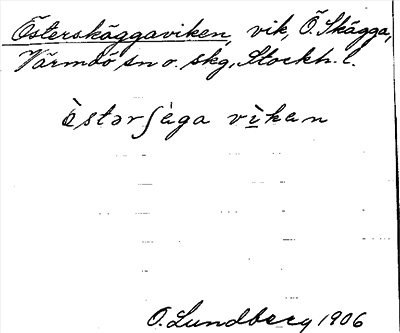 Österskäggaviken, vik, Ö. Skägga,
Värmdö sn o. skg, Stockh. l.
èstərʃàga vìkən
O. Lundberg 1906